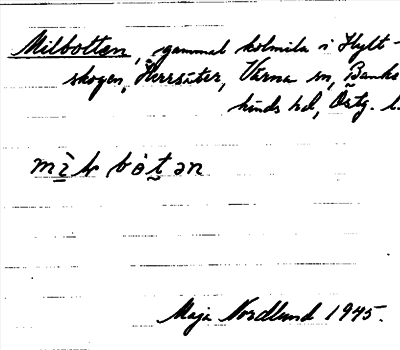 Milbotten, gammal kolmila i Hylt-
skogen, Herrsäter, Värna sn, Banke-
kinds hd, Östg. l.
Maja Nordlund 1945.